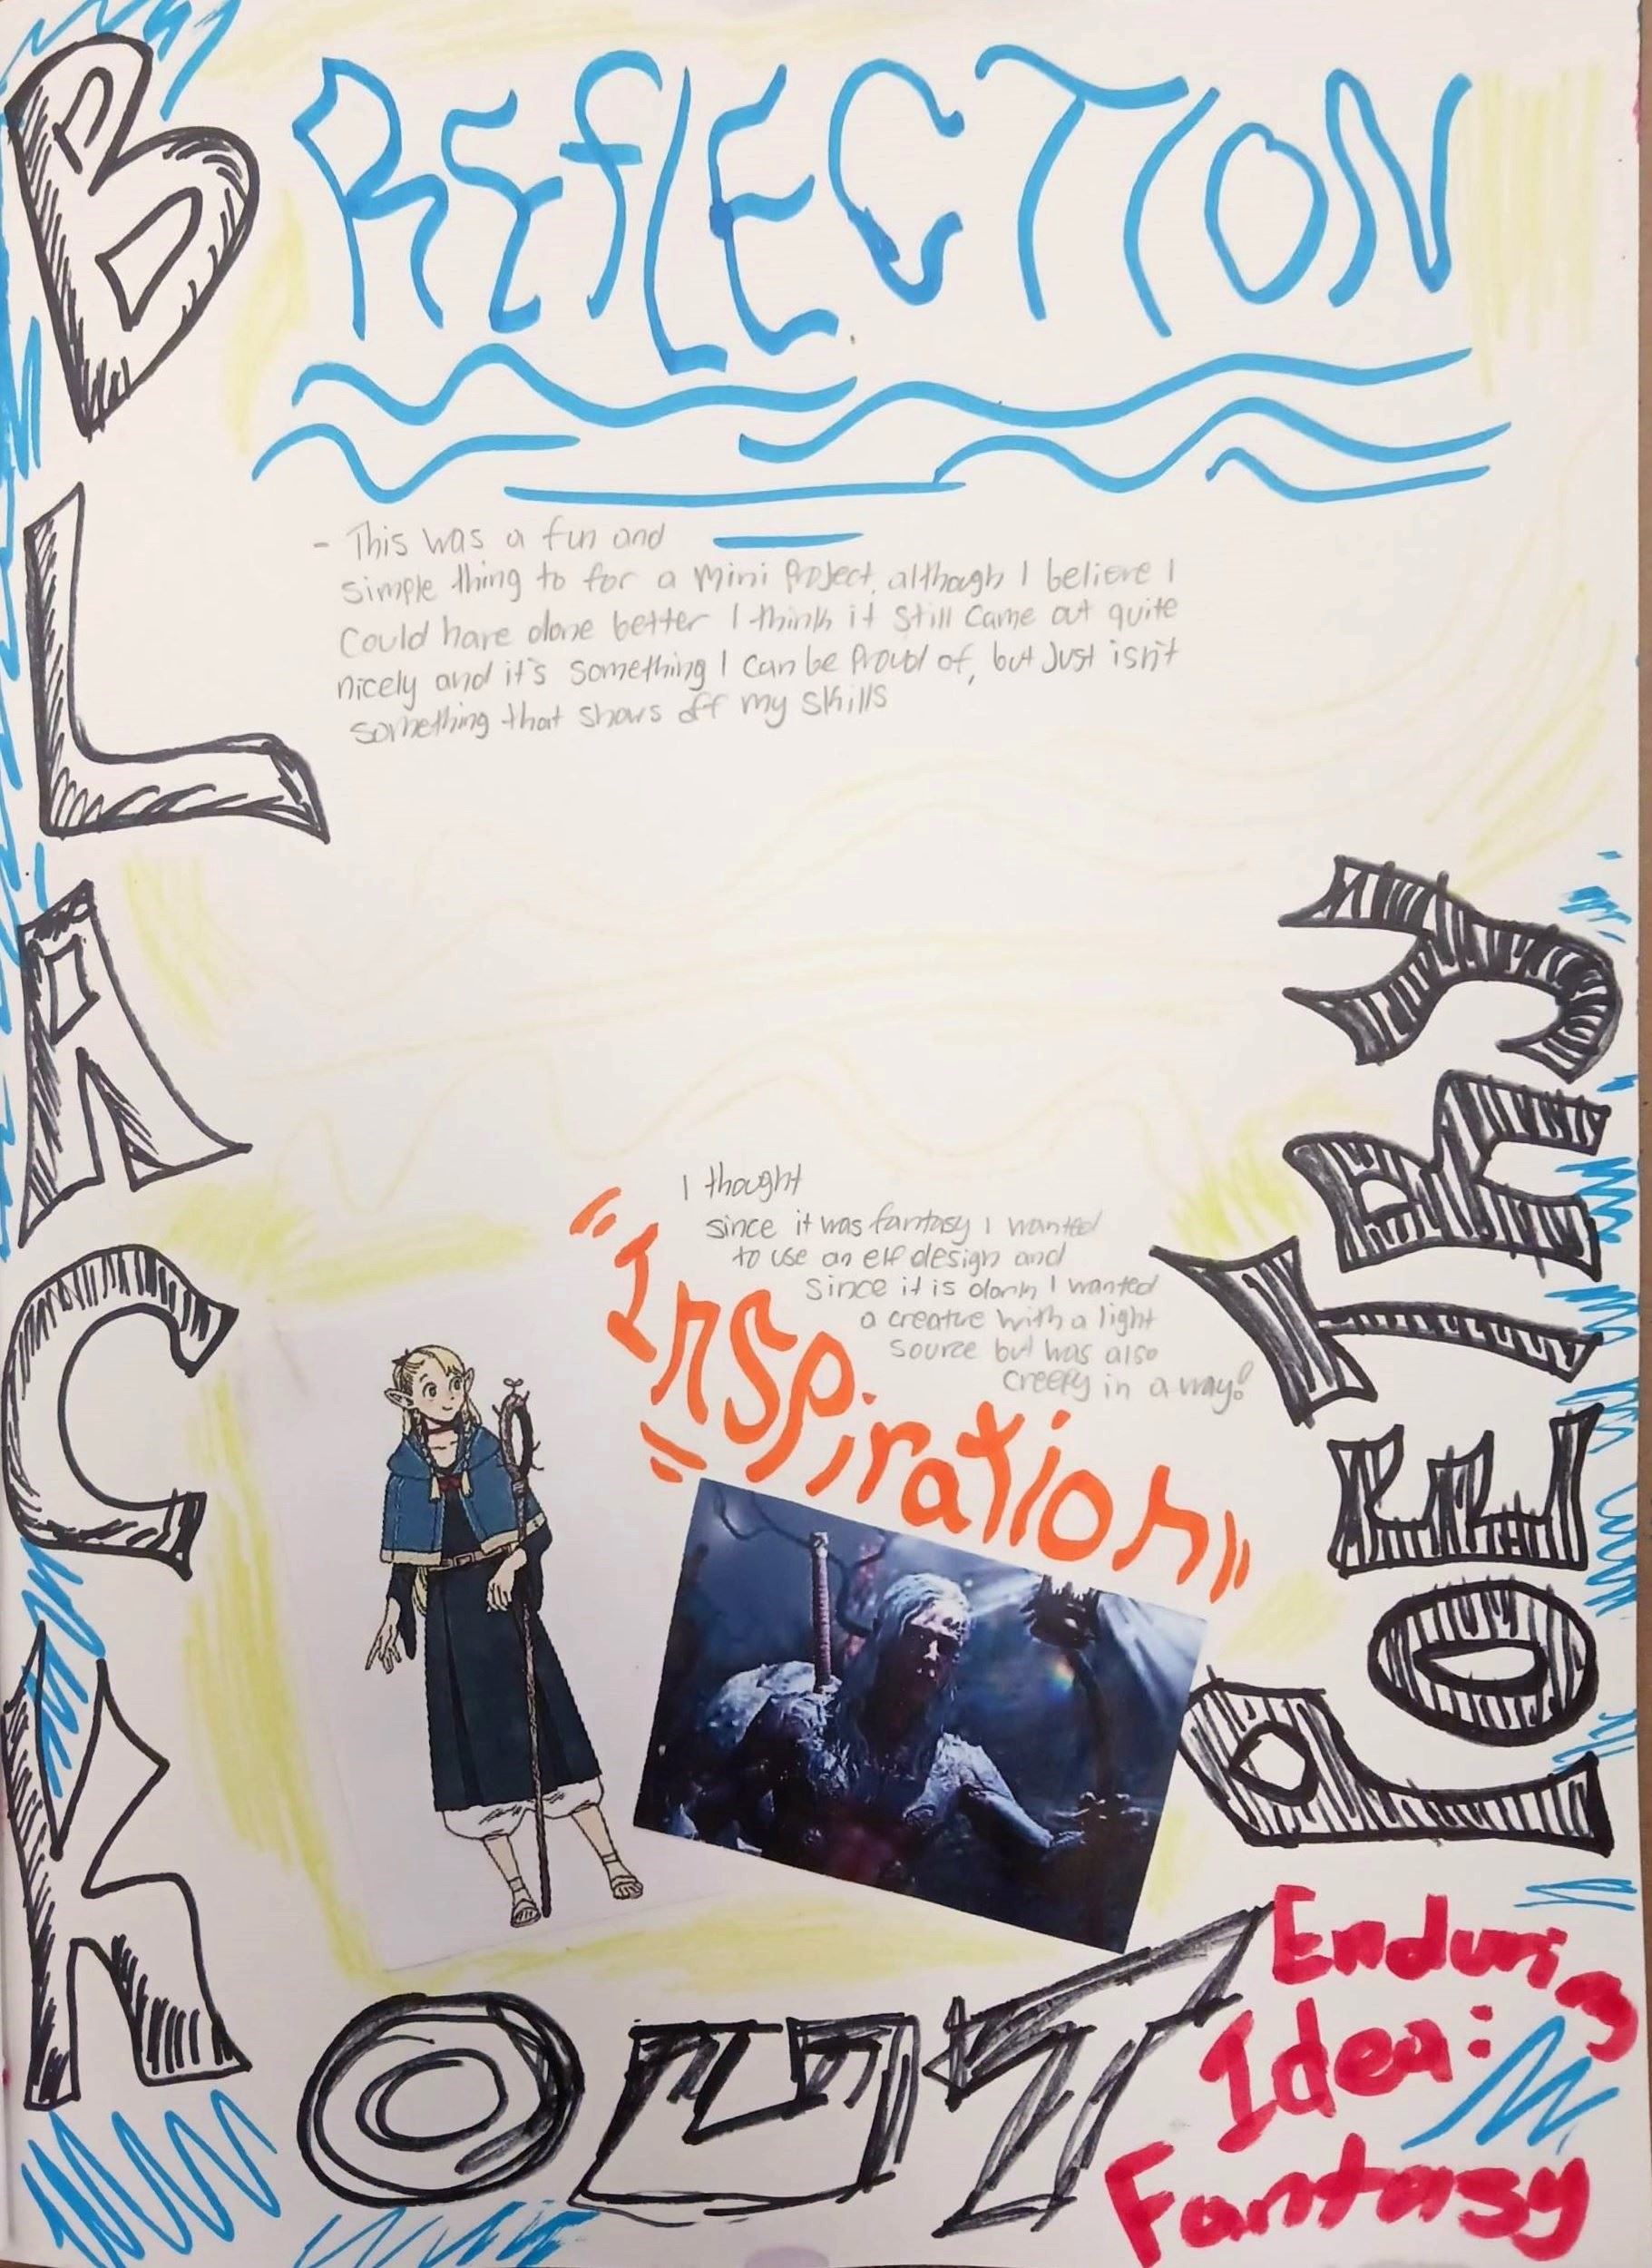 REflECTION
BLACK
- This was a fun and
simple thing to for a mini Project, although I believe I
Could have done better I think it still came out quite
nicely and it's something I can be Proud of, but Just isn't
something that shows off my skills
I thought
since it was fantasy I wanted
to use an elf design and
Since it is dark I wanted
a creature with a light
source but was also
creepy in a way!
"Inspiration"
POETRY
OUT
Enduring
Idea:
Fantasy